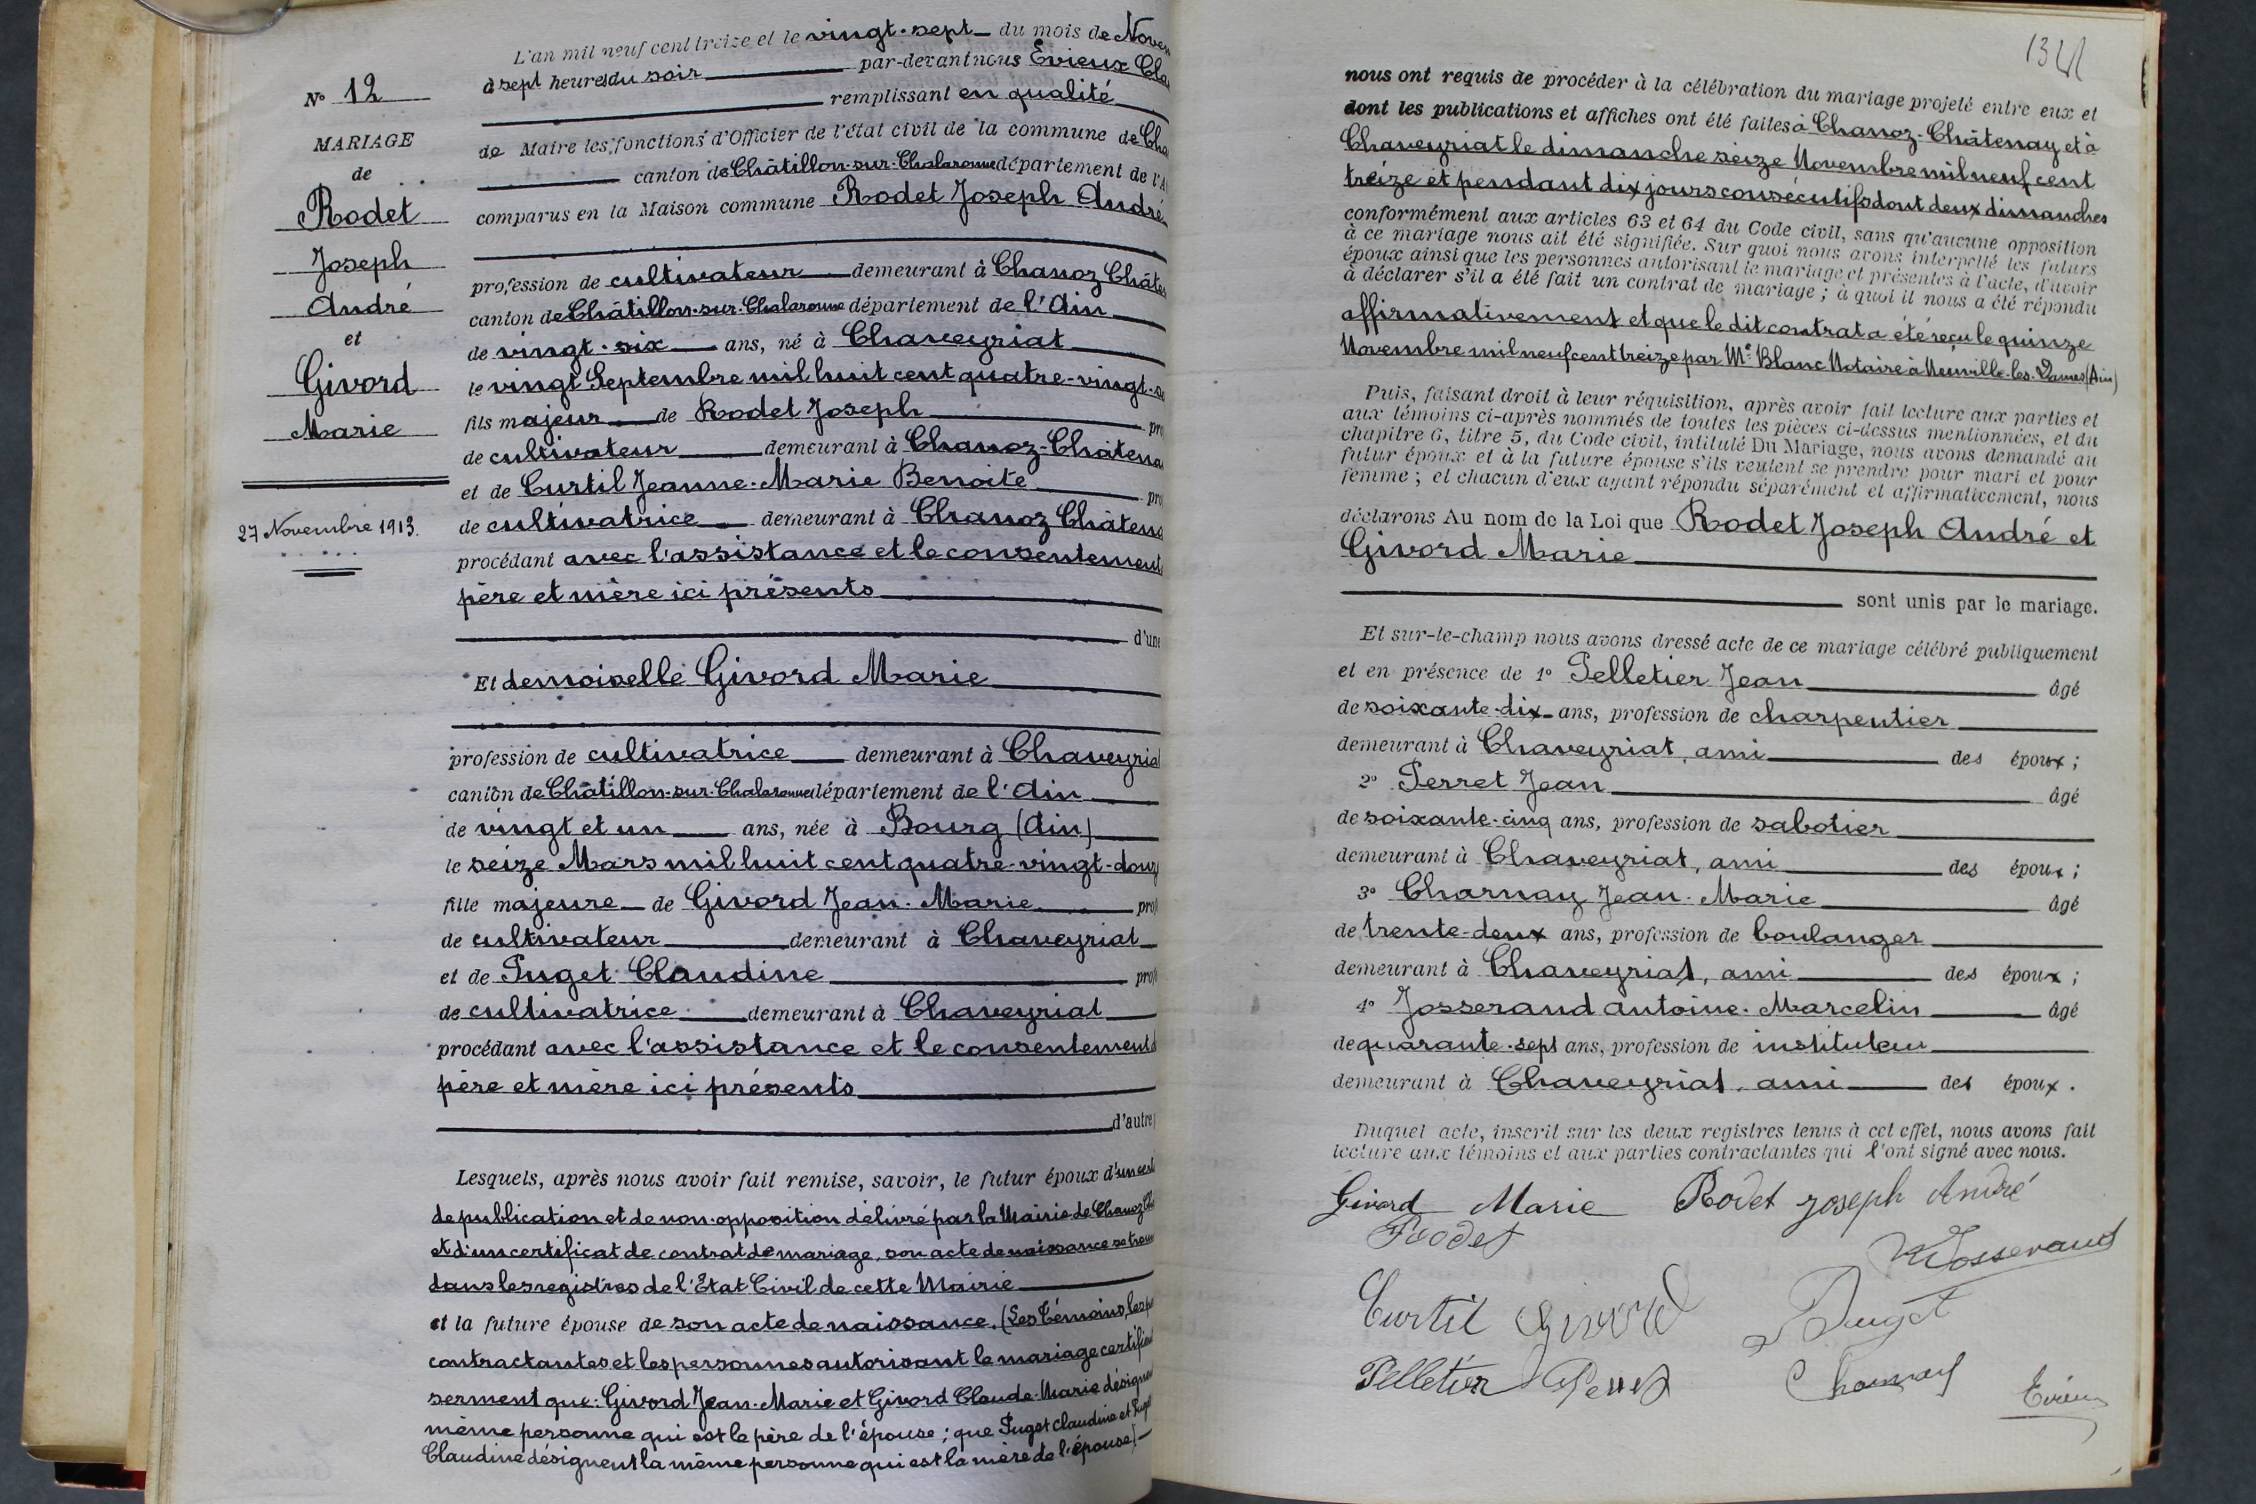 N° 12
MARIAGE
de
Rodet
Joseph
André
et
Givord
Marie
27 Novembre 1913.
L'an mil neuf cent treize et le vingt-sept du mois de Novem
à sept heures du soir par-devant nous Evieux Cla
remplissant en qualité
de Maire les fonctions d'Officier de l'état civil de la commune de Cha
canton de Châtillon-sur-Chalaronne département de l'A
comparus en la Maison commune Rodet Joseph André
profession de cultivateur demeurant à Chanoz Châte
canton de Châtillon-sur-Chalaronne département de l'Ain
de vingt-six ans, né à Chaveyriat
le vingt Septembre mil huit cent quatre-vingt-s
fils majeur de Rodet Joseph pro
de cultivateur demeurant à Chanoz-Châtena
et de Curtil Jeanne-Marie Benoite pro
de cultivatrice demeurant à Chanoz Châtena
procédant avec l'assistance et le consentement
père et mère ici présents
d'une
Et demoiselle Givord Marie
profession de cultivatrice demeurant à Chaveyria
canton de Châtillon-sur-Chalaronne département de l'Ain
de vingt et un ans, née à Bourg (Ain)
le seize Mars mil huit cent quatre-vingt-douz
fille majeure de Givord Jean-Marie prof
de cultivateur demeurant à Chaveyriat
et de Puget Claudine prof
de cultivatrice demeurant à Chaveyriat
procédant avec l'assistance et le consentement d
père et mère ici présents
d'autre
Lesquels, après nous avoir fait remise, savoir, le futur époux d'un cert
de publication et de non-opposition délivré par la Mairie de Chanoz Châ
et d'un certificat de contrat de mariage, son acte de naissance se trou
dans les registres de l'Etat Civil de cette Mairie
et la future épouse de son acte de naissance. (Les Témoins, les p
contractantes et les personnes autorisant le mariage certifien
serment que: Givord Jean-Marie et Givord Claude-Marie désignen
même personne qui est le père de l'épouse; que Puget Claudine et Puget
Claudine désignent la même personne qui est la mère de l'épouse)
nous ont requis de procéder à la célébration du mariage projeté entre eux et
dont les publications et affiches ont été faites à Chanoz-Châtenay et à
Chaveyriat le dimanche seize Novembre mil neuf cent
treize et pendant dix jours consécutifs dont deux dimanches
conformément aux articles 63 et 64 du Code civil, sans qu'aucune opposition
à ce mariage nous ait été signifiée. Sur quoi nous avons interpellé les futurs
époux ainsi que les personnes autorisant le mariage et présentes à l'acte, d'avoir
à déclarer s'il a été fait un contrat de mariage; à quoi il nous a été répondu
affirmativement et que le dit contrat a été reçu le quinze
Novembre mil neuf cent treize par Me Blanc Notaire à Neuville-les-Dames (Ain)
Puis, faisant droit à leur réquisition, après avoir fait lecture aux parties et
aux témoins ci-après nommés de toutes les pièces ci-dessus mentionnées, et du
chapitre 6, titre 5, du Code civil, intitulé Du Mariage, nous avons demandé au
futur époux et à la future épouse s'ils veulent se prendre pour mari et pour
femme; et chacun d'eux ayant répondu séparément et affirmativement, nous
déclarons Au nom de la Loi que Rodet Joseph André et
Givord Marie
sont unis par le mariage.
Et sur-le-champ nous avons dressé acte de ce mariage célébré publiquement
et en présence de 1° Pelletier Jean âgé
de soixante-dix ans, profession de charpentier
demeurant à Chaveyriat, ami des époux;
2° Perret Jean âgé
de soixante-cinq ans, profession de sabotier
demeurant à Chaveyriat, ami des époux;
3° Charnay Jean-Marie âgé
de trente-deux ans, profession de boulanger
demeurant à Chaveyriat, ami des époux;
4° Josserand Antoine-Marcelin âgé
de quarante-sept ans, profession de instituteur
demeurant à Chaveyriat, ami des époux.
Duquel acte, inscrit sur les deux registres tenus à cet effet, nous avons fait
lecture aux témoins et aux parties contractantes qui l'ont signé avec nous.
Givord Marie Rodet Joseph André
Rodet
Josserand
Curtil Givord Puget
Pelletier Perret Charnay Evieux